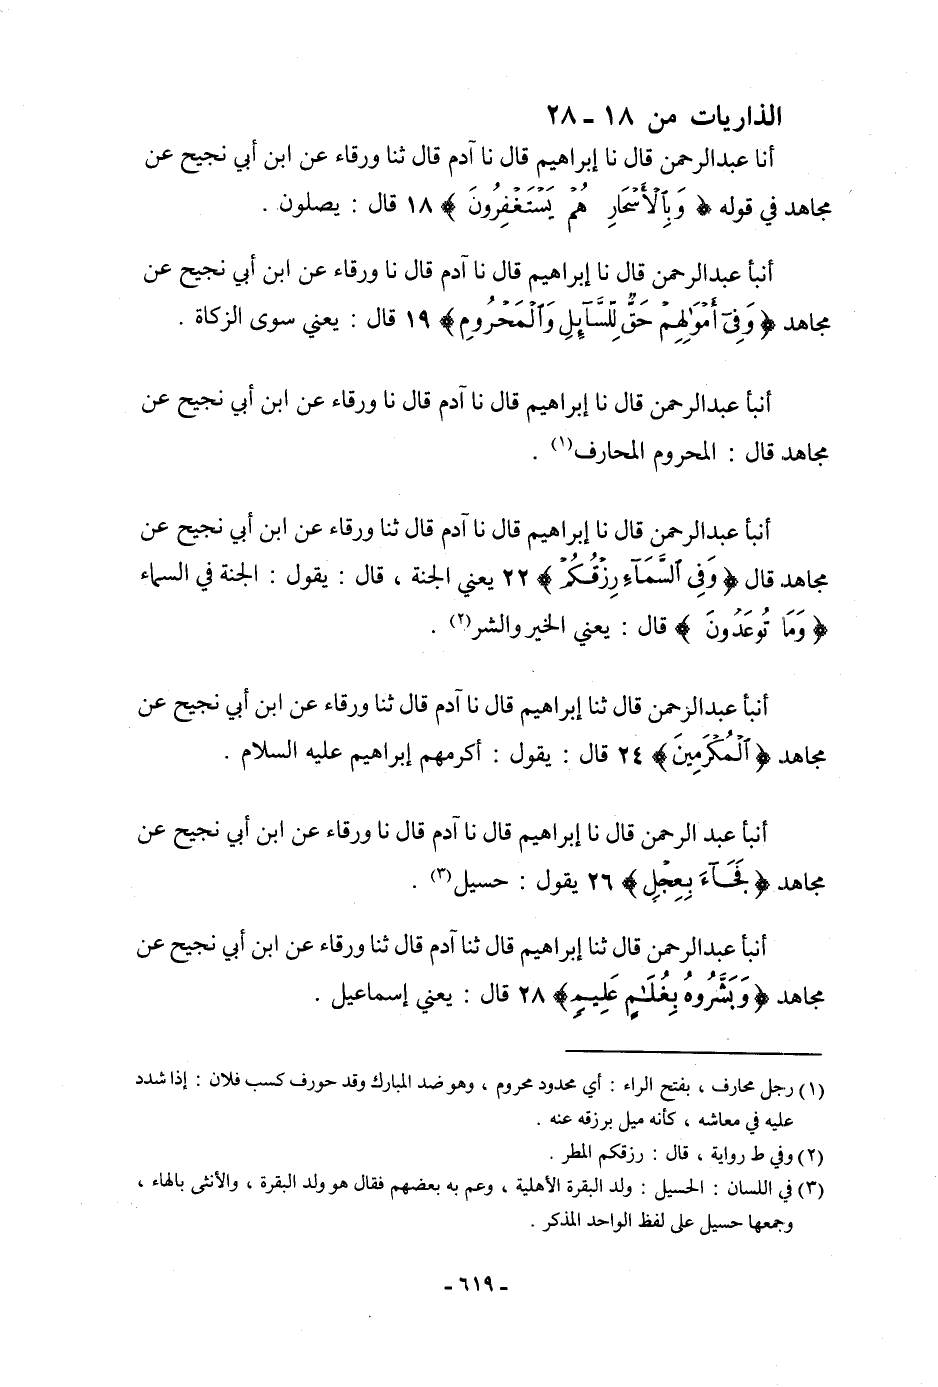 الذاريات من ١٨ - ٢٨
أنا عبدالرحمن قال نا إبراهيم قال نا آدم قال ثنا ورقاء عن ابن أبي نجيح عن
مجاهد في قوله ﴿ وَبِٱلْأَسْحَارِ هُمْ يَسْتَغْفِرُونَ ﴾ ١٨ قال : يصلون .
أنبأ عبدالرحمن قال نا إبراهيم قال نا آدم قال نا ورقاء عن ابن أبي نجيح عن
مجاهد ﴿ وَفِىٓ أَمْوَٰلِهِمْ حَقٌّ لِّلسَّآئِلِ وَٱلْمَحْرُومِ ﴾ ١٩ قال : يعني سوى الزكاة .
أنبأ عبدالرحمن قال نا إبراهيم قال نا آدم قال نا ورقاء عن ابن أبي نجيح عن
مجاهد قال : المحروم المحارف(١) .
أنبأ عبدالرحمن قال نا إبراهيم قال نا آدم قال ثنا ورقاء عن ابن أبي نجيح عن
مجاهد قال ﴿ وَفِى ٱلسَّمَآءِ رِزْقُكُمْ ﴾ ٢٢ يعني الجنة ، قال : يقول : الجنة في السماء
﴿ وَمَا تُوعَدُونَ ﴾ قال : يعني الخير والشر(٢) .
أنبأ عبدالرحمن قال ثنا إبراهيم قال نا آدم قال ثنا ورقاء عن ابن أبي نجيح عن
مجاهد ﴿ ٱلْمُكْرَمِينَ ﴾ ٢٤ قال : يقول : أكرمهم إبراهيم عليه السلام .
أنبأ عبد الرحمن قال نا إبراهيم قال نا آدم قال نا ورقاء عن ابن أبي نجيح عن
مجاهد ﴿ فَجَآءَ بِعِجْلٍ ﴾ ٢٦ يقول : حسيل(٣) .
أنبأ عبدالرحمن قال ثنا إبراهيم قال ثنا آدم قال ثنا ورقاء عن ابن أبي نجيح عن
مجاهد ﴿ وَبَشَّرُوهُ بِغُلَٰمٍ عَلِيمٍ ﴾ ٢٨ قال : يعني إسماعيل .
(١) رجل محارف ، بفتح الراء : أي محدود محروم ، وهو ضد المبارك وقد حورف كسب فلان : إذا شدد
عليه في معاشه ، كأنه ميل برزقه عنه .
(٢) وفي ط رواية ، قال : رزقكم المطر .
(٣) في اللسان : الحسيل : ولد البقرة الأهلية ، وعم به بعضهم فقال هو ولد البقرة ، والأنثى بالهاء ،
وجمعها حسيل على لفظ الواحد المذكر .
- ٦١٩ -